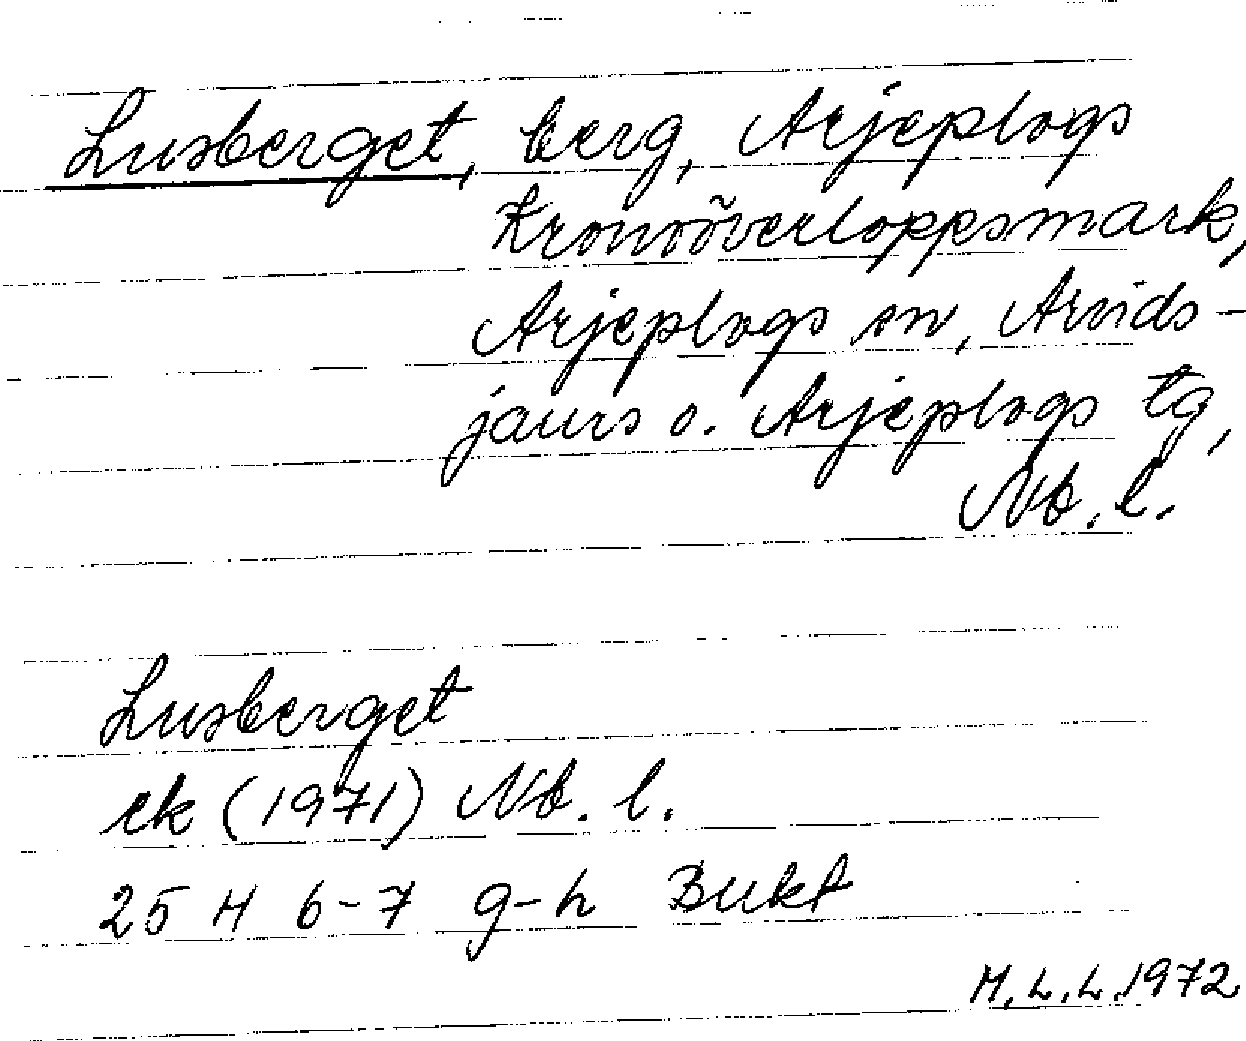 Lusberget, berg, Arjeplogs
Kronoöverloppsmark,
Arjeplogs sn, Arvids-
jaurs o. Arjeplogs tg,
Nb. l.
Lusberget
ek (1971) Nb. l.
25 H 6-7 g-h Bukt
M.L.L. 1972